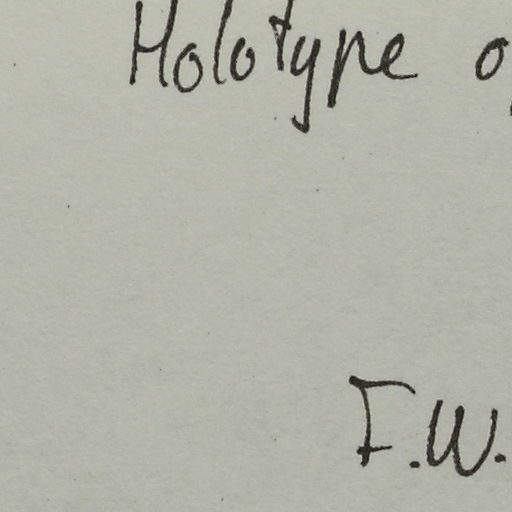 Holotype o
F.W.